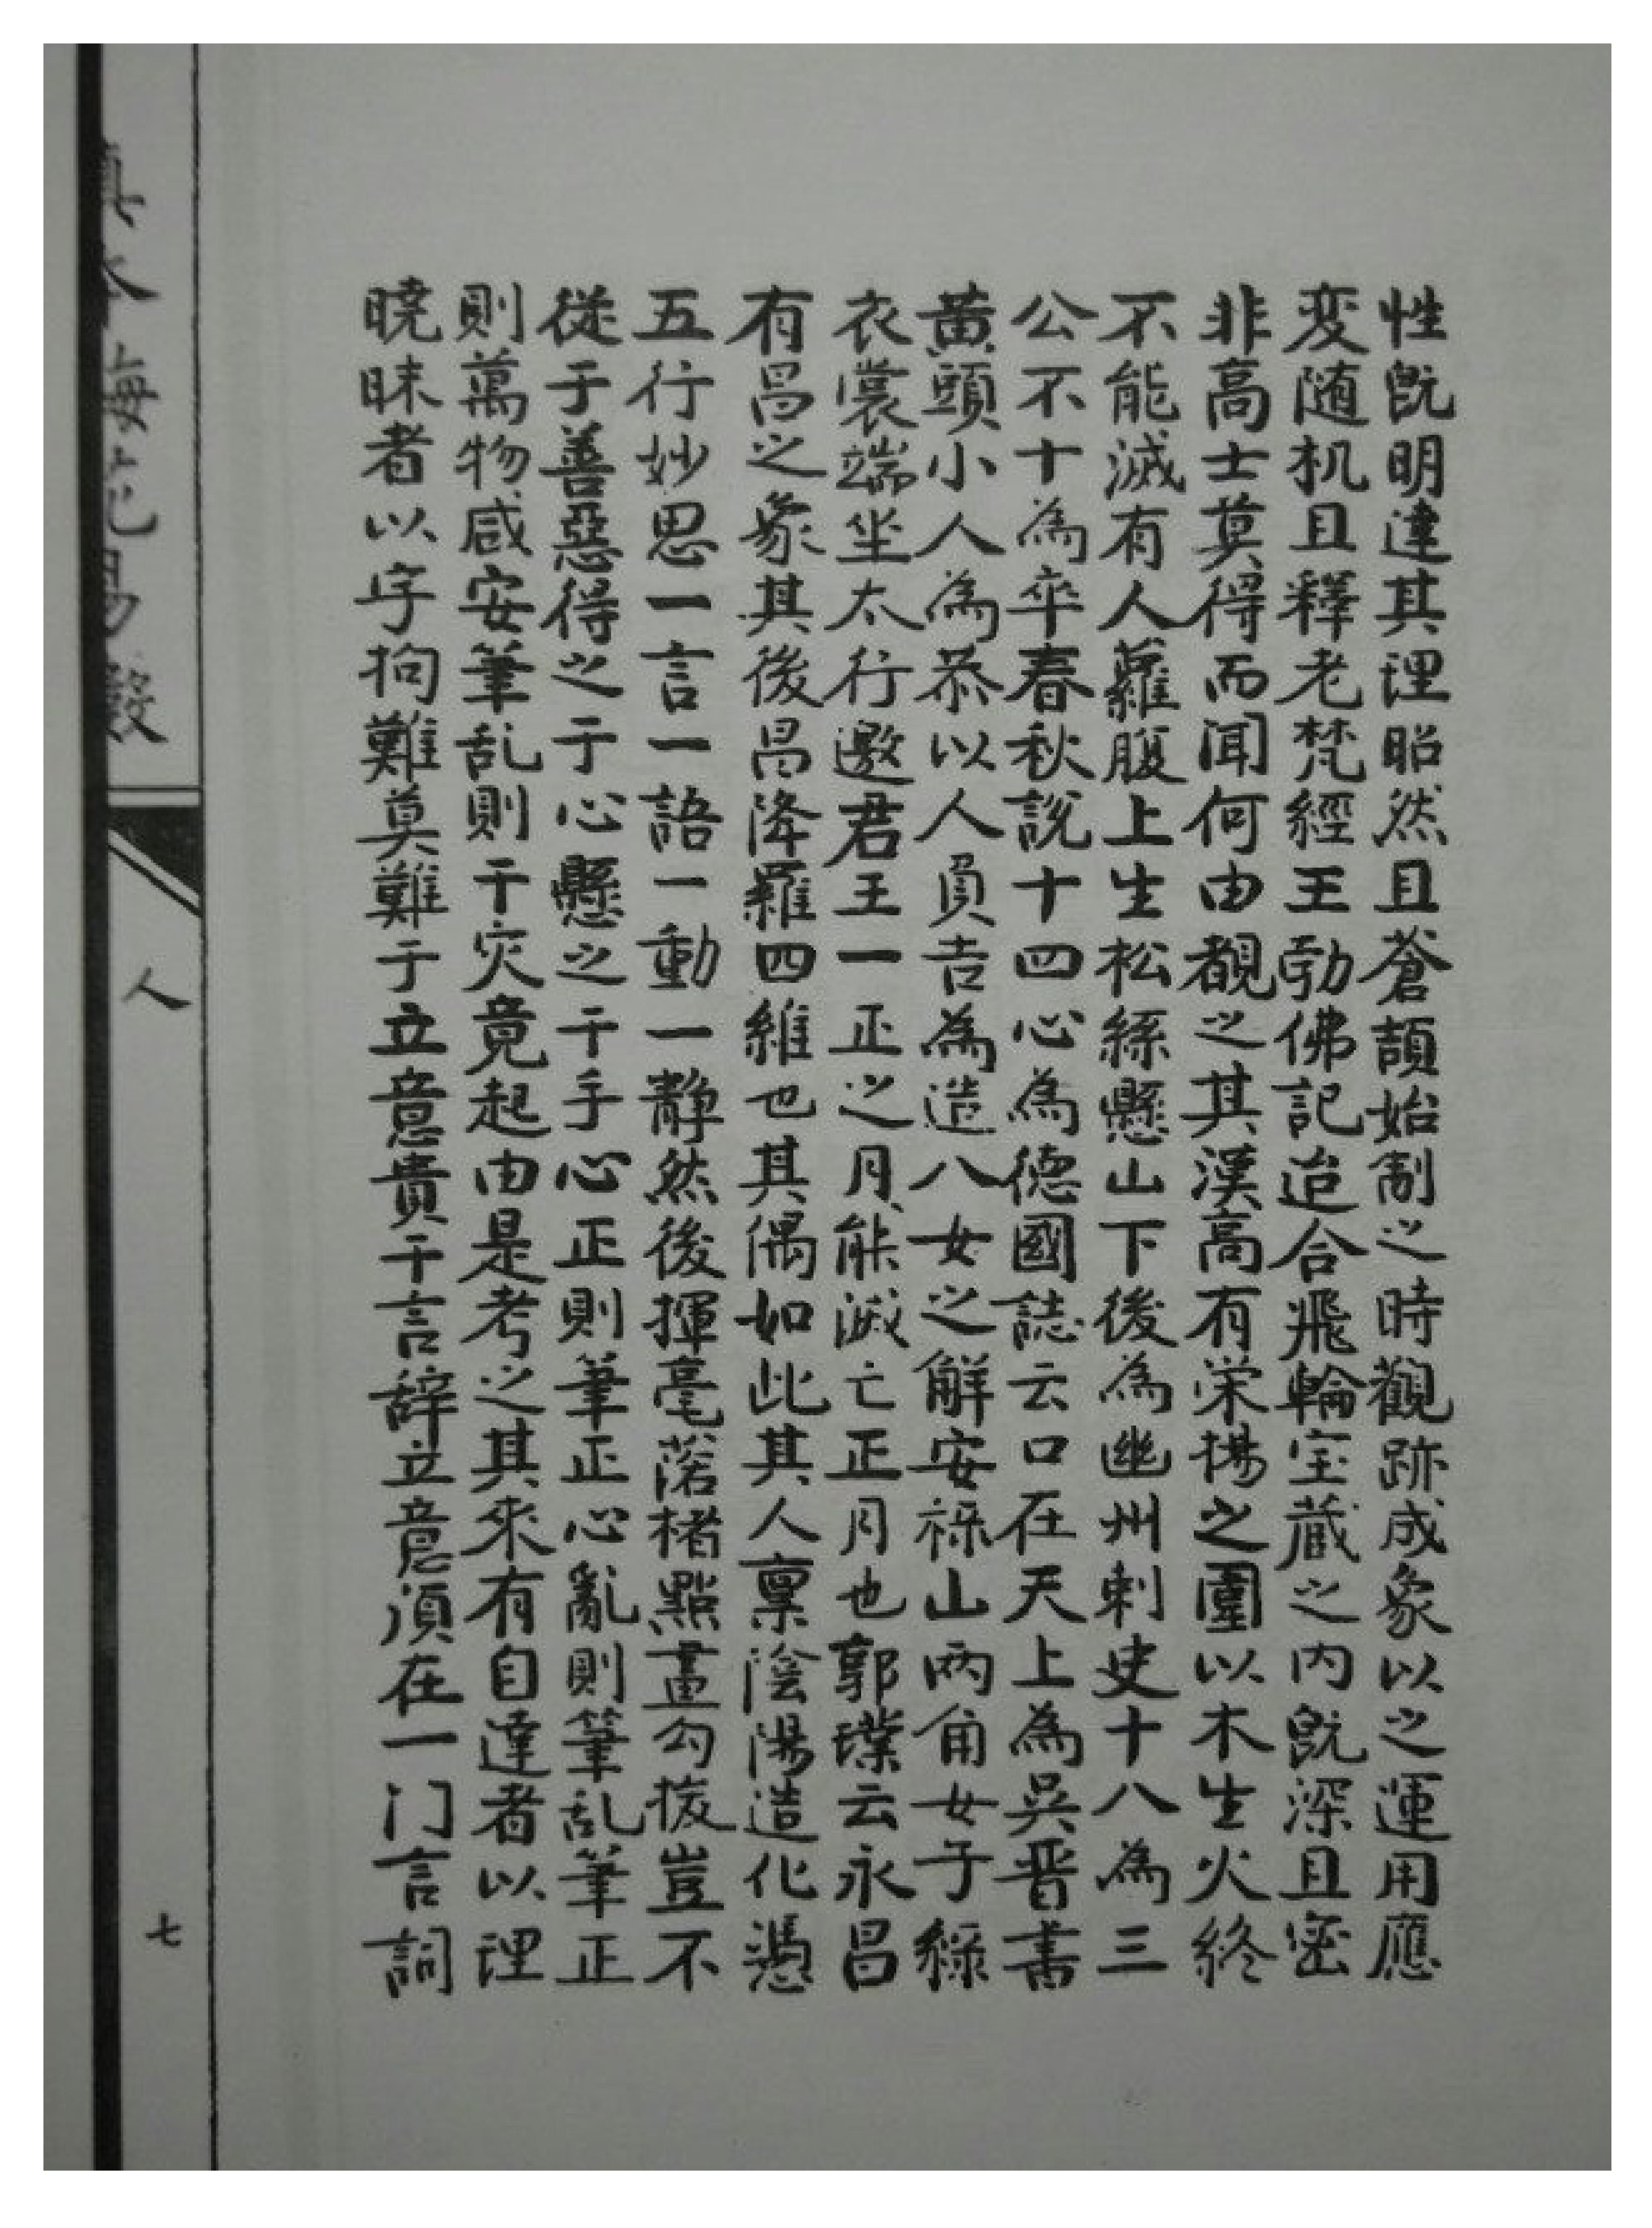 性既明達其理昭然且蒼頡始制之時觀跡成象以之運用應
变随机且釋老梵經王勃佛記迨合飛輪宝蔵之内既深且密
非高士莫得而闻何由覩之其漢高有栄揚之圍以木生火終
不能滅有人蘿腹上生松絲懸山下後為幽州刺史十八為三
公不十為卒春秋說十四心為德國誌云口在天上為吳晋書
黄頭小人為恭以人負吉為造八女之解安祿山两角女子綠
衣裳端坐太行邀君王一正之月能滅亡正月也郭璞云永昌
有昌之象其後昌降羅四維也其偶如此其人稟陰陽造化憑
五行妙思一言一語一動一静然後揮毫落楮點畫勾拔豈不
從于善惡得之于心懸之于手心正則筆正心亂則筆乱筆正
則萬物咸安筆乱則干灾竟起由是考之其來有自達者以理
曉昧者以字拘難莫難于立意貴于言辞立意須在一门言詞
真本梅花易數
人
七